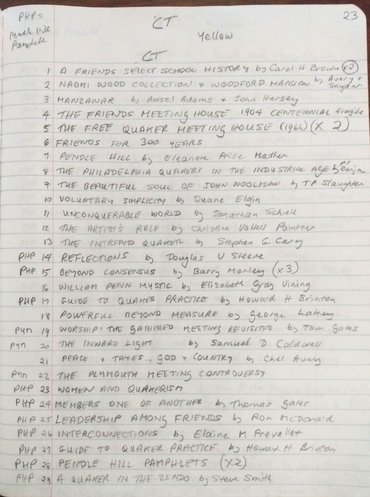 PHP =
Pendle Hill
Pamphlet
CT
23
Yellow
CT
1 A FRIENDS SELECT SCHOOL HISTORY by Carol H Brown (x2)
2 NAOMI WOOD COLLECTION & WOODFORD MANSION by Avery & Snyder
3 MANZANAR by Ansel Adams & John Hersey
4 THE FRIENDS MEETING HOUSE 1904 CENTENNIAL Fragile
5 THE FREE QUAKER MEETING HOUSE (1966) (X 2)
6 FRIENDS FOR 300 YEARS
7 PENDLE HILL by Eleanore Price Mather
8 THE PHILADELPHIA QUAKERS IN THE INDUSTRIAL AGE by
9 THE BEAUTIFUL SOUL OF JOHN WOOLMAN by TP Slaughter
10 VOLUNTARY SIMPLICITY by Duane Elgin
11 UNCONQUERABLE WORLD by Jonathan Schell
12 THE ARTIST'S RULE by Christine Valters Paintner
13 THE INTREPID QUAKER by Stephen G Cary
PHP 14 REFLECTIONS by Douglas V Steere
PHP 15 BEYOND CONSENSUS by Barry Morley (x3)
16 WILLIAM PENN MYSTIC by Elizabeth Gray Vining
PHP 17 GUIDE TO QUAKER PRACTICE by Howard H Brinton
18 POWERFUL BEYOND MEASURE by George Lakey
PYM 19 WORSHIP: THE GATHERED MEETING REVISITED by Tom Gates
PYM 20 THE INWARD LIGHT by Samuel D Caldwell
21 PEACE & TAXES.. GOD & COUNTRY by Chel Avery
PYM 22 THE PLYMOUTH MEETING CONTROVERSY
PHP 23 WOMEN AND QUAKERISM
PHP 24 MEMBERS ONE OF ANOTHER by Thomas Gates
PHP 25 LEADERSHIP AMONG FRIENDS by Ron McDonald
PHP 26 INTERCONNECTIONS by Elaine M Prevallet
PHP 27 GUIDE TO QUAKER PRACTICE by Howard H Brinton
PHP 28 PENDLE HILL PAMPHLETS (X2)
PHP 29 A QUAKER IN THE ZENDO by Steve Smith